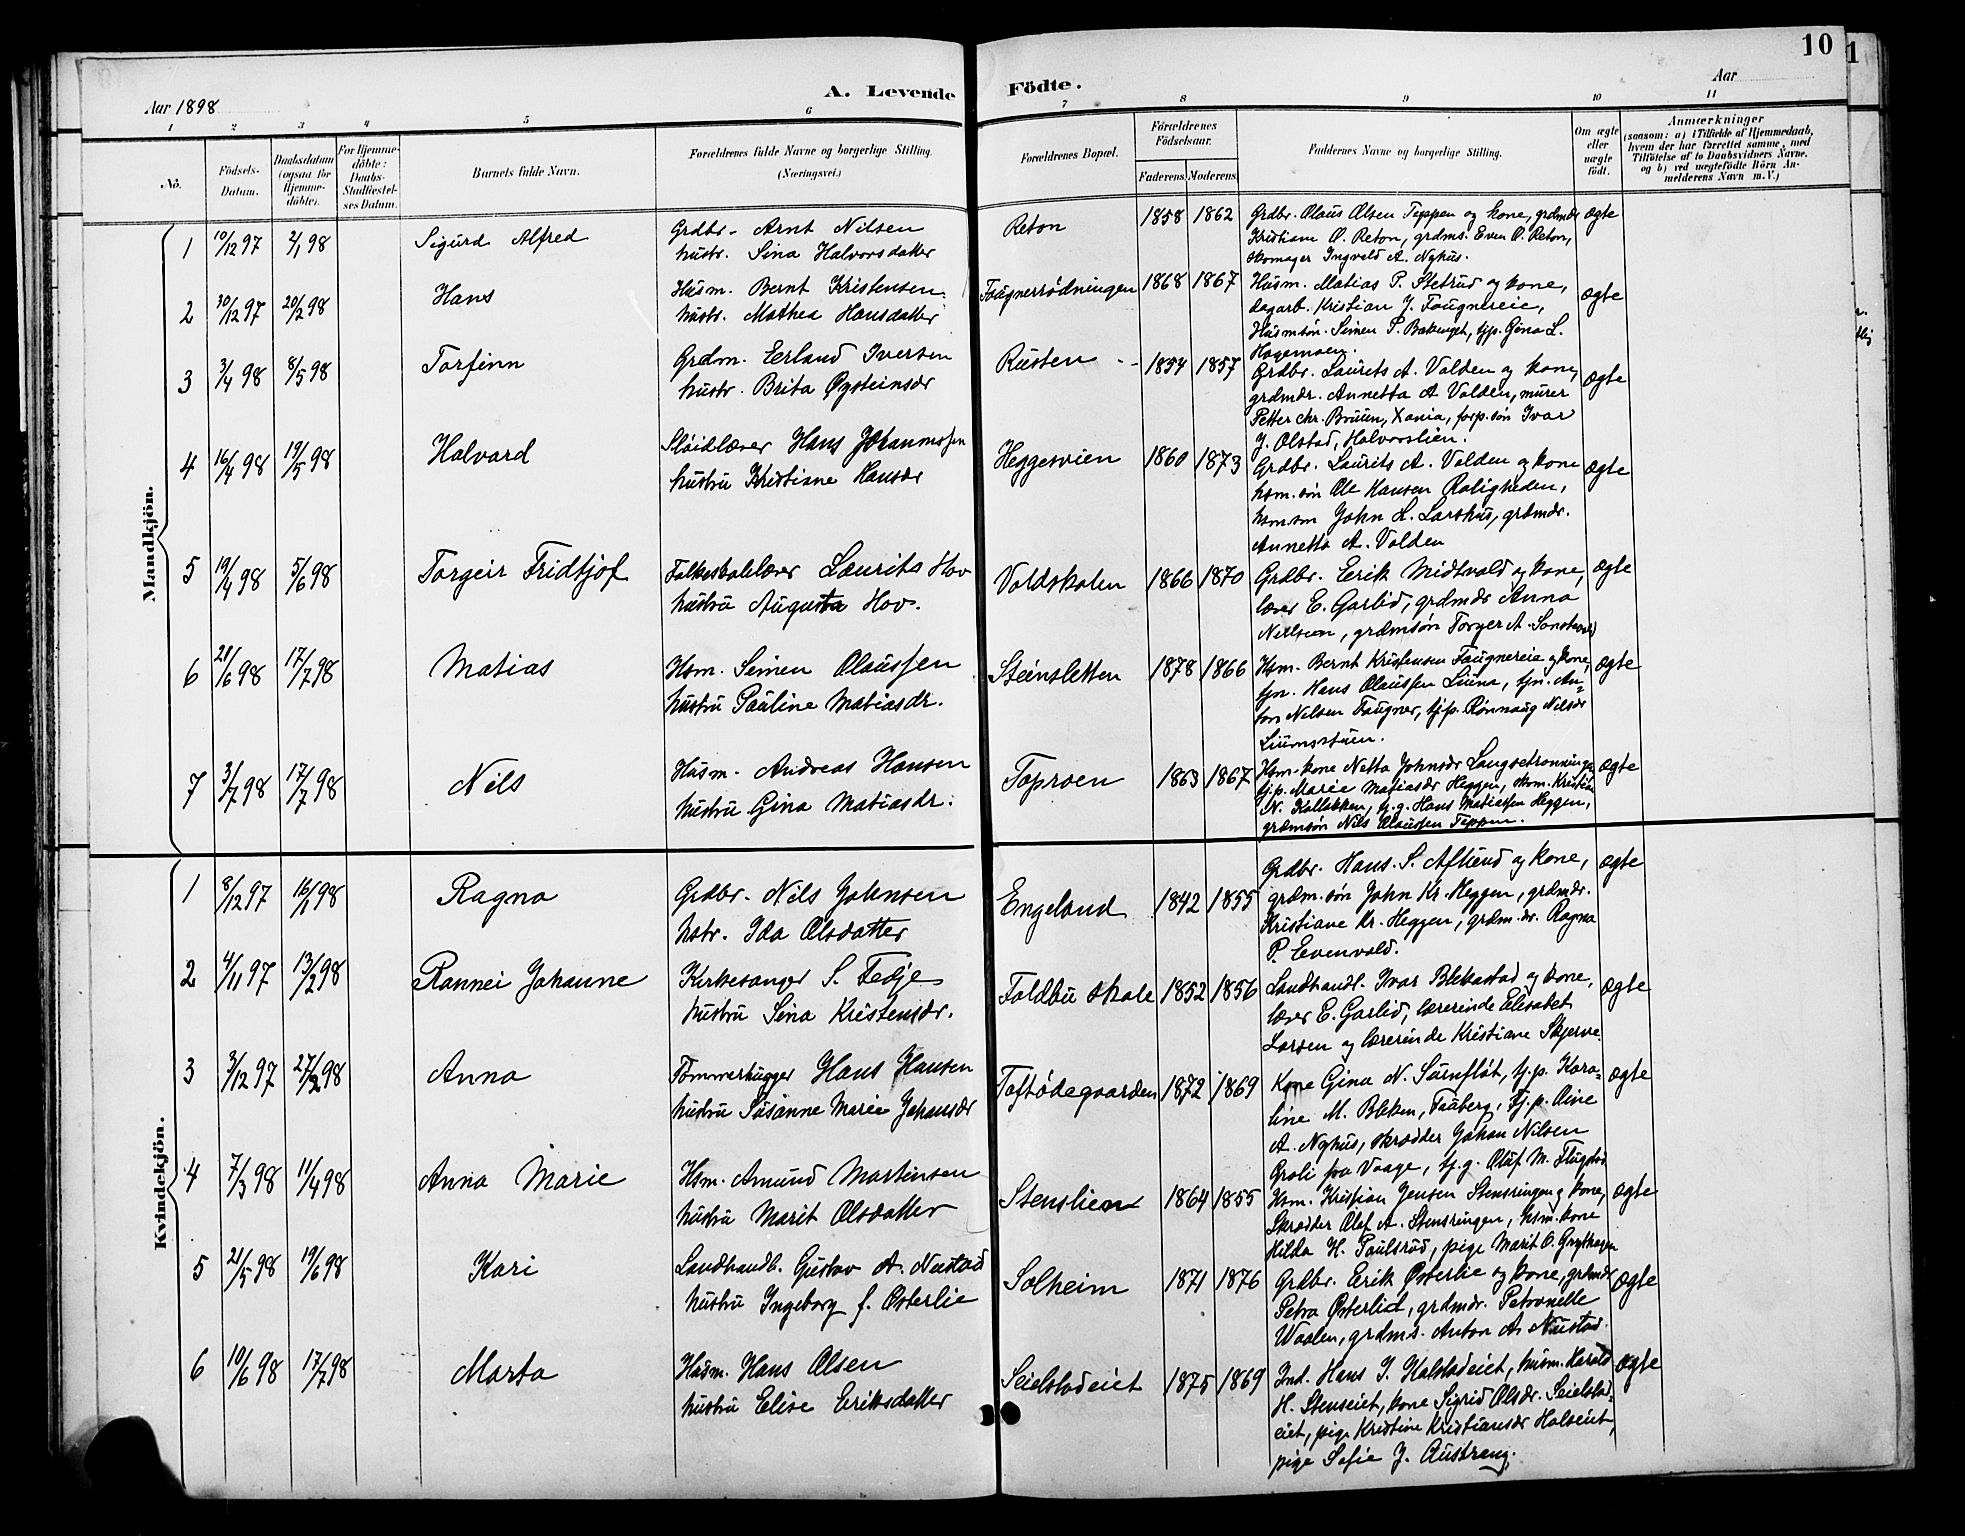 10
1
Aar 1898
A. Levende Födte.
Aar
1 2 3 4 5 6 7 8 9 10 11
No.
Födsels-Datum.
Daabsdatum (ogsaa for Hjemme-döbte).
For Hjemme-döbte: Daabs-Stadfæstel-ses Datum.
Barnets fulde Navn.
Forældrenes fulde Navne og borgerlige Stilling. (Næringsvei.)
Forældrenes Bopæl.
Forældrenes Födselsaar.
Faderens. Moderens.
Faddernes Navne og borgerlige Stilling.
Om ægte eller uægte födt.
Anmærkninger
(saasom: a) i Tilfælde af Hjemmedaab, hvem der har forrettet samme, med Tilföielse af to Daabsvidners Navne, og b) ved uægtefödte Börn An-melderens Navn m.V.)
Mandkjön.
1 10/12 97 2/1 98 Sigurd Alfred
Grdbr. Arnt Nilsen
hustr. Sina Halvorsdatter
Reton 1858 1862
Grdbr. Olaus Olsen Teppen og kone, grdmdr
Kristiane O. Reton, grdms. Even O. Reton,
skomager Ingvald A. Nyhus.
ægte
2 30/12 97 20/2 98 Hans
Husm. Bernt Kristensen
hustr. Mathea Hansdatter
Faugnerrødningen 1868 1867
Husm. Matias P. Stetrud og kone,
dagarb. Kristian J. Faugnereie,
Husmsøn. Simen P. Bakenget, tjp. Gina L.
Hagemoen.
ægte
3 3/4 98 8/5 98 Torfinn
Grdm. Erland Iversen
hustr. Brita Øysteinsdr
Rusten 1854 1857
Grdbr. Laurits A. Volden og kone,
grdmdr. Annetta A Volden, murer
Petter Chr. Bruun, Xania, forp. søn Ivar
J. Olstad, Halvorslien.
ægte
4 16/4 98 19/5 98 Halvard
Sløidlærer Hans Johannessen
hustru Kristiane Hansdr
Heggesvien 1860 1873
Grdbr. Laurits A. Volden og kone
hsm. søn Ole Hansen Roligheden,
hsm. søn John L. Larshus, grdmdr.
Annetta A. Volden
ægte
5 19/4 98 5/6 98 Torgeir Fridtjof
Folkeskolelærer Laurits Hov
hustru Augusta Hov.
Voldskolen 1866 1870
Grdbr. Erik Midtvold og kone,
lærer E. Garlid, grdmdr Anna
Nielsen, grdmsøn Torger A.
ægte
6 21/6 98 17/7 98 Matias
Hsm. Simen Olaussen
hustru Pauline Matiasdr.
Steinsletten 1878 1866
Hsm. Bernt Kristensen Faugnereie og kone,
tjn. Hans Olaussen Liuna, tjn. An-
ton Nilsen Faugner, tjp. Rønnaug Nilsdr
Liumsstuen.
ægte
7 3/7 98 17/7 98 Nils
Husm. Andreas Hansen
hustru Gina Matiasdr.
Toproen 1863 1867
Hsm. kone Netta Johnsdr
tj.p. Marie Matiasdr Heggen, skom. Kristian
N. Kalbakken, tj.g. Hans Matiassen Heggen,
grdmsøn Nils Olaussen Teppen.
ægte
Kvindekjön.
1 8/12 97 16/1 98 Ragna
Grdbr. Nils Johnsen
hstr. Ida Olsdatter
Engeland 1842 1855
Grdbr. Hans S. Aflund og kone,
grdm. søn John Kr. Heggen, grdmdr.
Kristiane Kr. Heggen, grdm. dr. Ragna
P. Evenvold.
ægte
2 4/11 97 13/2 98 Rannei Johanne
Kirkesanger S. Fedje
hustru Sina Kristensdr.
Foldbu skole 1852 1856
Landhandl. Ivar Blekastad og kone,
lærer E. Garlid, lærerinde Elisabet
Larsen og lærerinde Kristiane Skjerve.
ægte
3 3/12 97 27/2 98 Anna
Tømmerhugger Hans Hansen
hustru Susanne Marie Johansdr
Toftødegaarden 1872 1869
Kone Gina N. Surnflöt, tj.p. Karo-
line M. Bleken, Faaberg, Tj.p. Oline
A. Nyhus, skrædder Johan Nilsen
Groli fra Vaage, tj.g. Oluf M. Flugstad
ægte
4 7/3 98 11/4 98 Anna Marie
Hsm. Amund Martinsen
hustru Marit Olsdatter
Stenslien 1864 1855
Hsm. Kristian Jensen Stensringen og kone,
Skrædder Olaf A. Stensringen, hsm. kone
Hilda H. Paulsrød, pige Marit O. Grythagen
ægte
5 21/5 98 19/6 98 Kari
Landhandl. Gustav A. Nustad
hustru Ingeborg f. Østerlie
Solheim 1871 1876
Grdbr. Erik Østerlie og kone, grdmdr
Petra Østerlid, grdmdr. Petronelle
Waalen, grdms. Anton A. Nustad.
ægte
6 10/6 98 17/7 98 Marta
Husm. Hans Olsen
hustru Elise Eriksdatter
Seielstadeiet 1875 1869
Ind. Hans J. Kalstadeiet, husm. Harald
H. Stenseiet, kone Sigrid Olsdr. Seielstad-
eiet, pige Kristine Kristiansdr Holseiet,
pige Sofie J. Austreng.
ægte